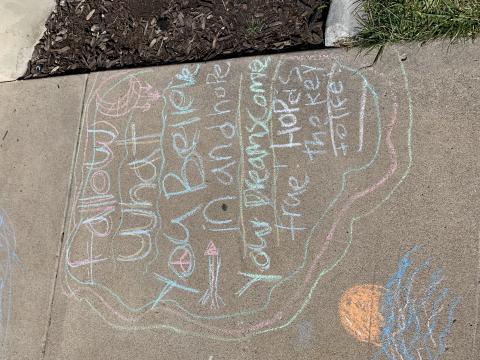 follow
what
You Believe
in and hope
Your Dreams come
true. Hope is
the key
to life.